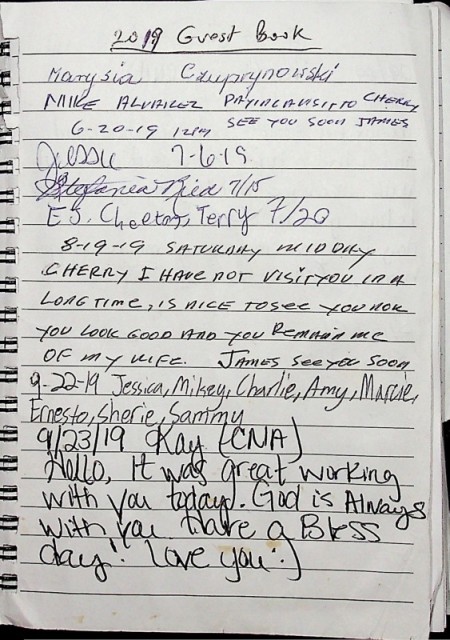 2019 Guest Book
Marysia Czuprynowski
MIKE ALVAREZ PAYING A VISIT TO CHERRY
6-20-19 12PM SEE YOU SOON JAMES
Jessie 7-6-19
Stefania 7/15
E.J. Cheetos, Terry 7/20
8-19-19 SATURDAY MIDDAY
CHERRY I HAVE NOT VISIT YOU IN A
LONG TIME, IS NICE TO SEE YOU
YOU LOOK GOOD AND YOU REMAIN ME
OF MY WIFE. JAMES SEE YOU SOON
9-22-19 Jessica, Mikey, Charlie, Amy, Marcie,
Ernesto, Sherie, Sammy
9/23/19 Kay (CNA)
Hello, It was great working
with you today. God is Always
with you. Have a Bless
day! Love you :)